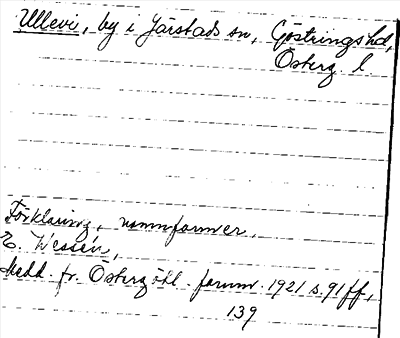 Ullevi, by i Järstads sn, Göstrings hd,
Österg. l.
Förklaring, namnformer,
E. Wessén,
Medd. fr. Östergötl. fornm. 1921 s. 91 ff,
139